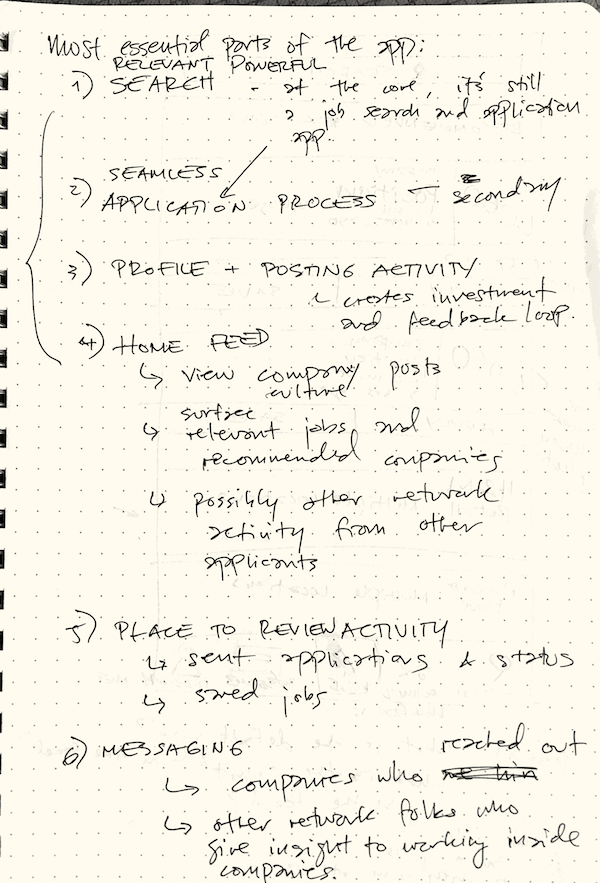 Most essential parts of the app:
RELEVANT POWERFUL
1) SEARCH - at the core, it's still
a job search and application
app.
SEAMLESS
2) APPLICATION PROCESS - secondary
3) PROFILE + POSTING ACTIVITY
↳ creates investment
and feedback loop.
4) HOME FEED
↳ view company posts
culture
surface
↳ relevant jobs and
recommended companies
↳ possibly other network
activity from other
applicants
5) PLACE TO REVIEW ACTIVITY
↳ sent applications & status
↳ saved jobs
6) MESSAGING
reached out
↳ companies who
↳ other network folks who
give insight to working inside
companies.